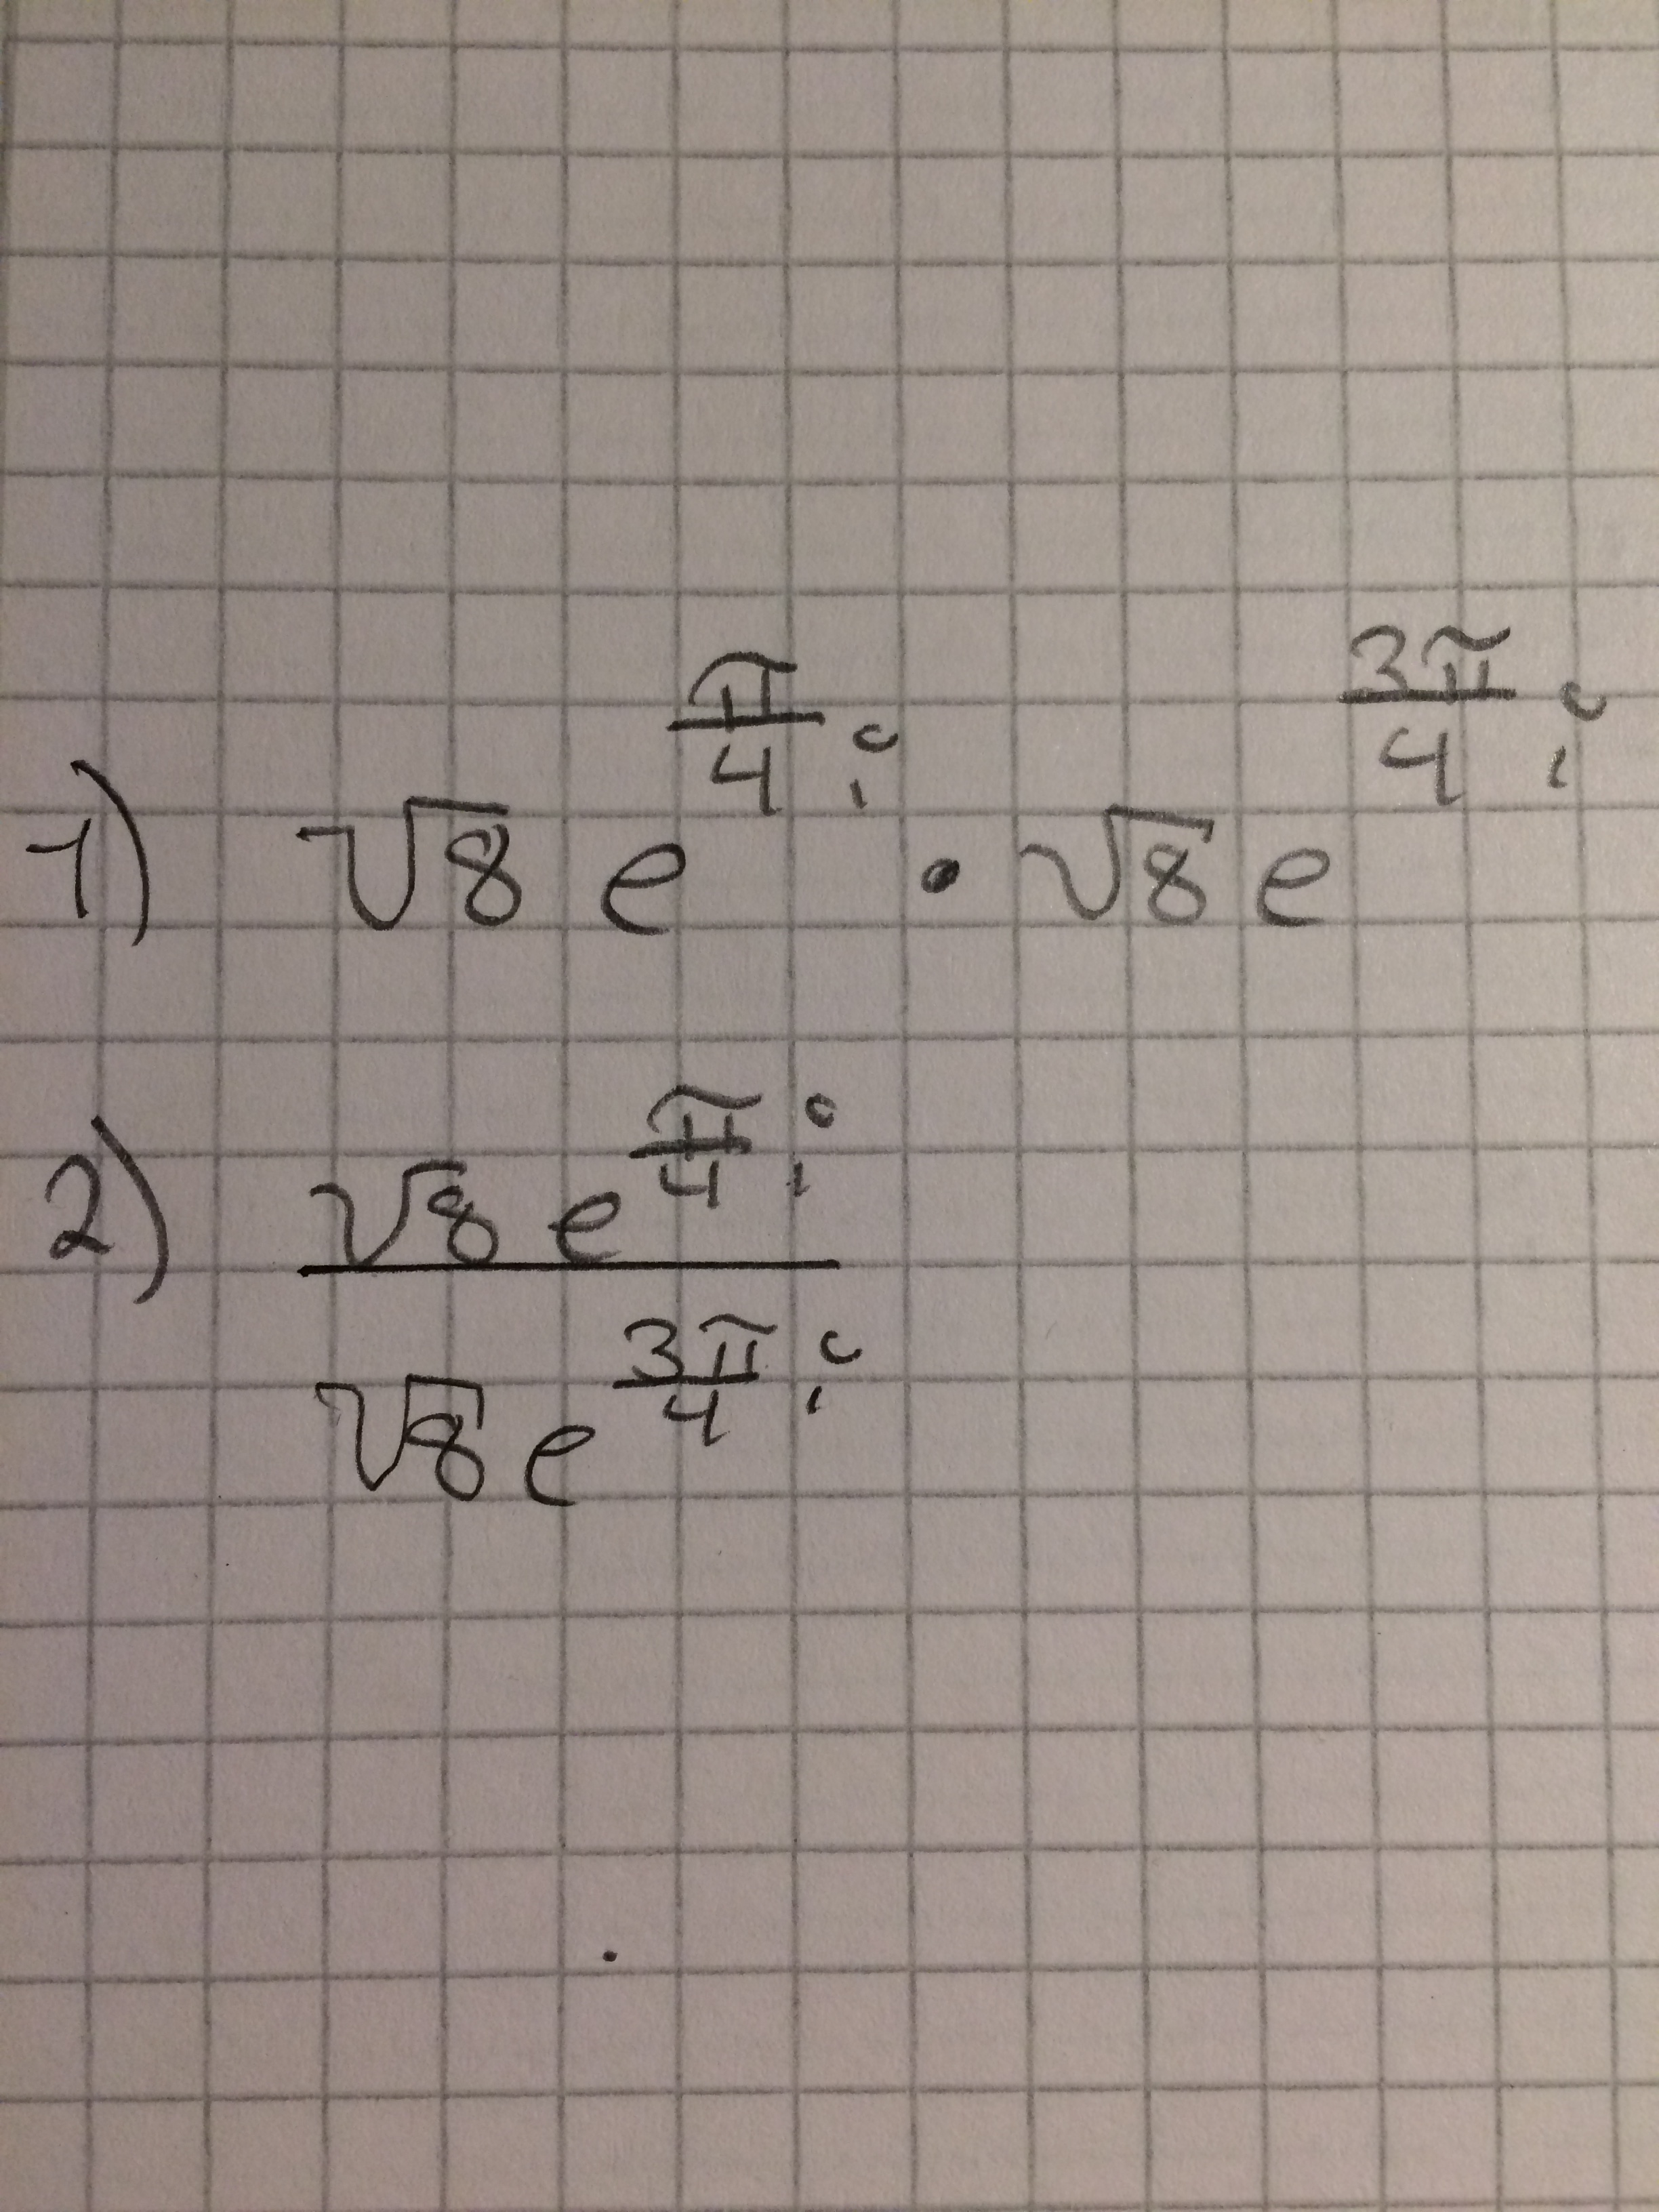 1) √8 e^(π/4 i) · √8 e^(3π/4 i)
2) √8 e^(π/4 i)
√8 e^(3π/4 i)